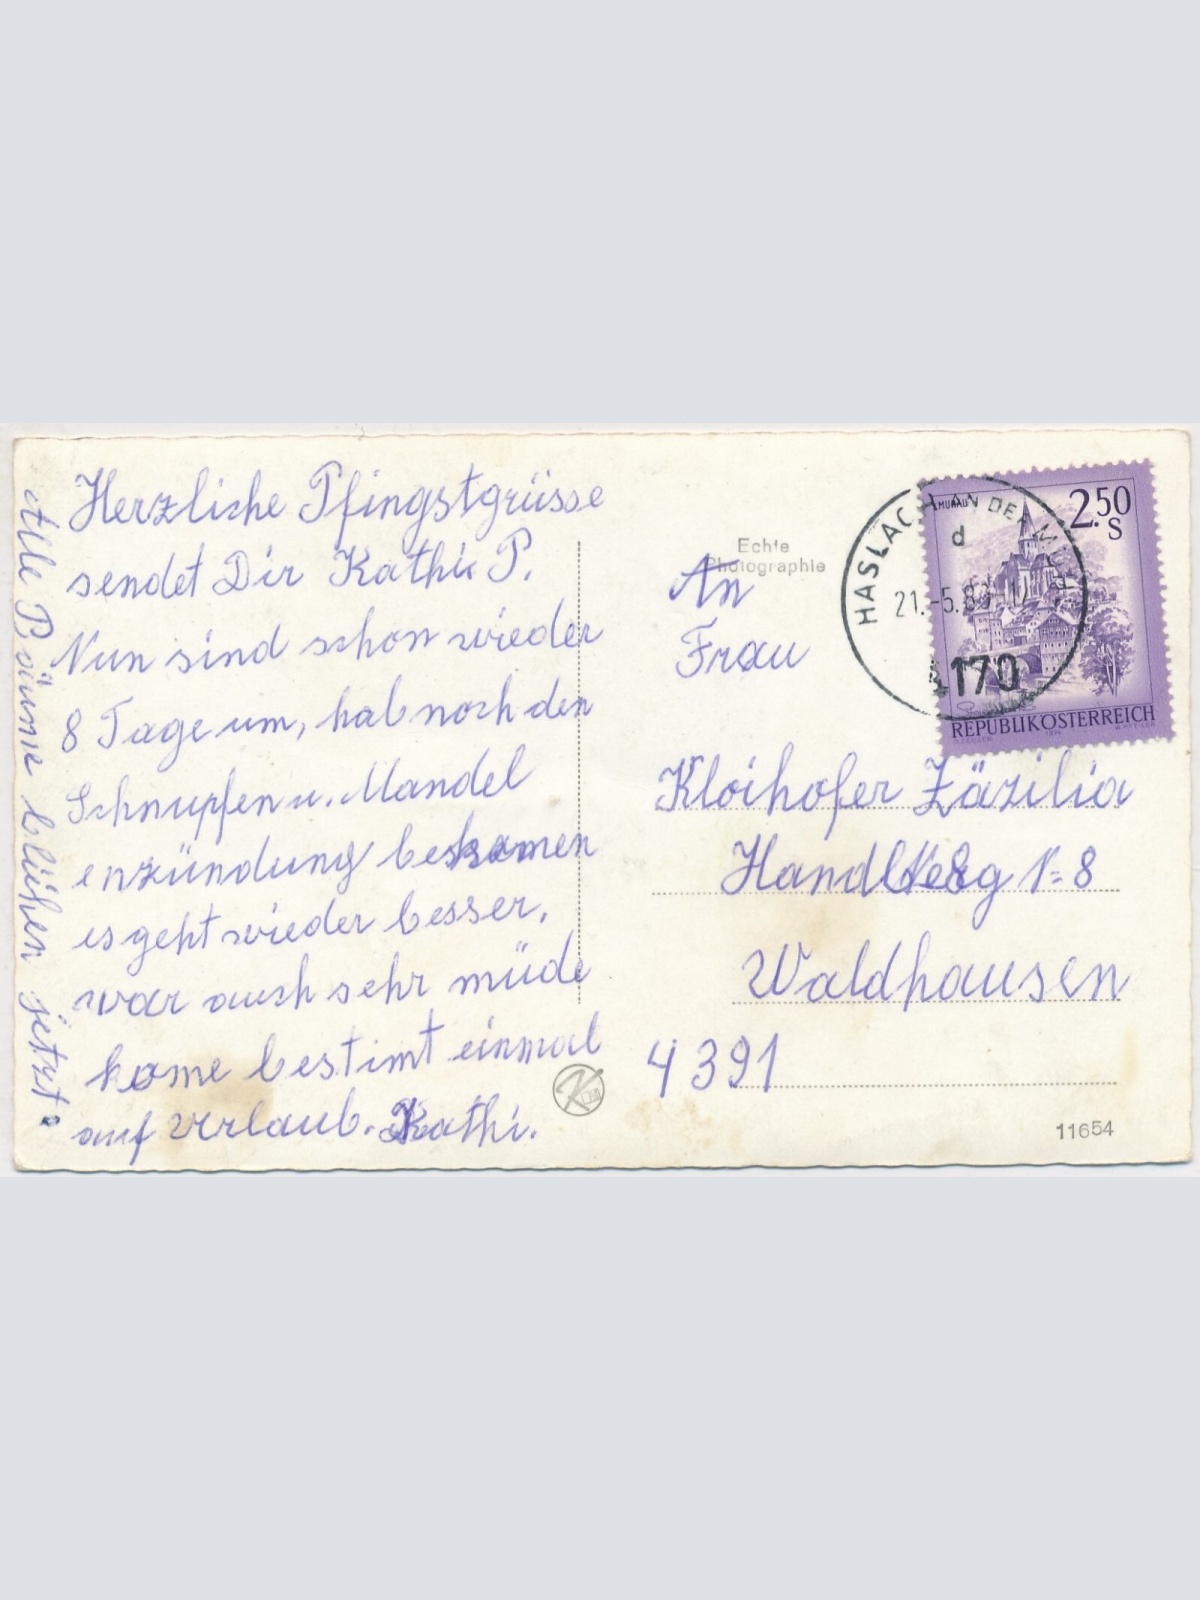 Herzliche Pfingstgrüsse
sendet Dir Kathi P.
Nun sind schon wieder
8 Tage um, hab noch den
Schnupfen u. Mandel
enzündung bekomen
es geht wieder besser,
war auch sehr müde
kome bestimt einmal
auf Urlaub. Kathi.
Alle Bäume blühen jetzt.
Echte
Photographie
An
Frau
Kloihofer Zäzilia
Handberg N= 8
Waldhausen
4391
11654
HASLACH AN DER MÜHL
d
21.-5.8
4170
MURAU
2.50
S
REPUBLIK ÖSTERREICH